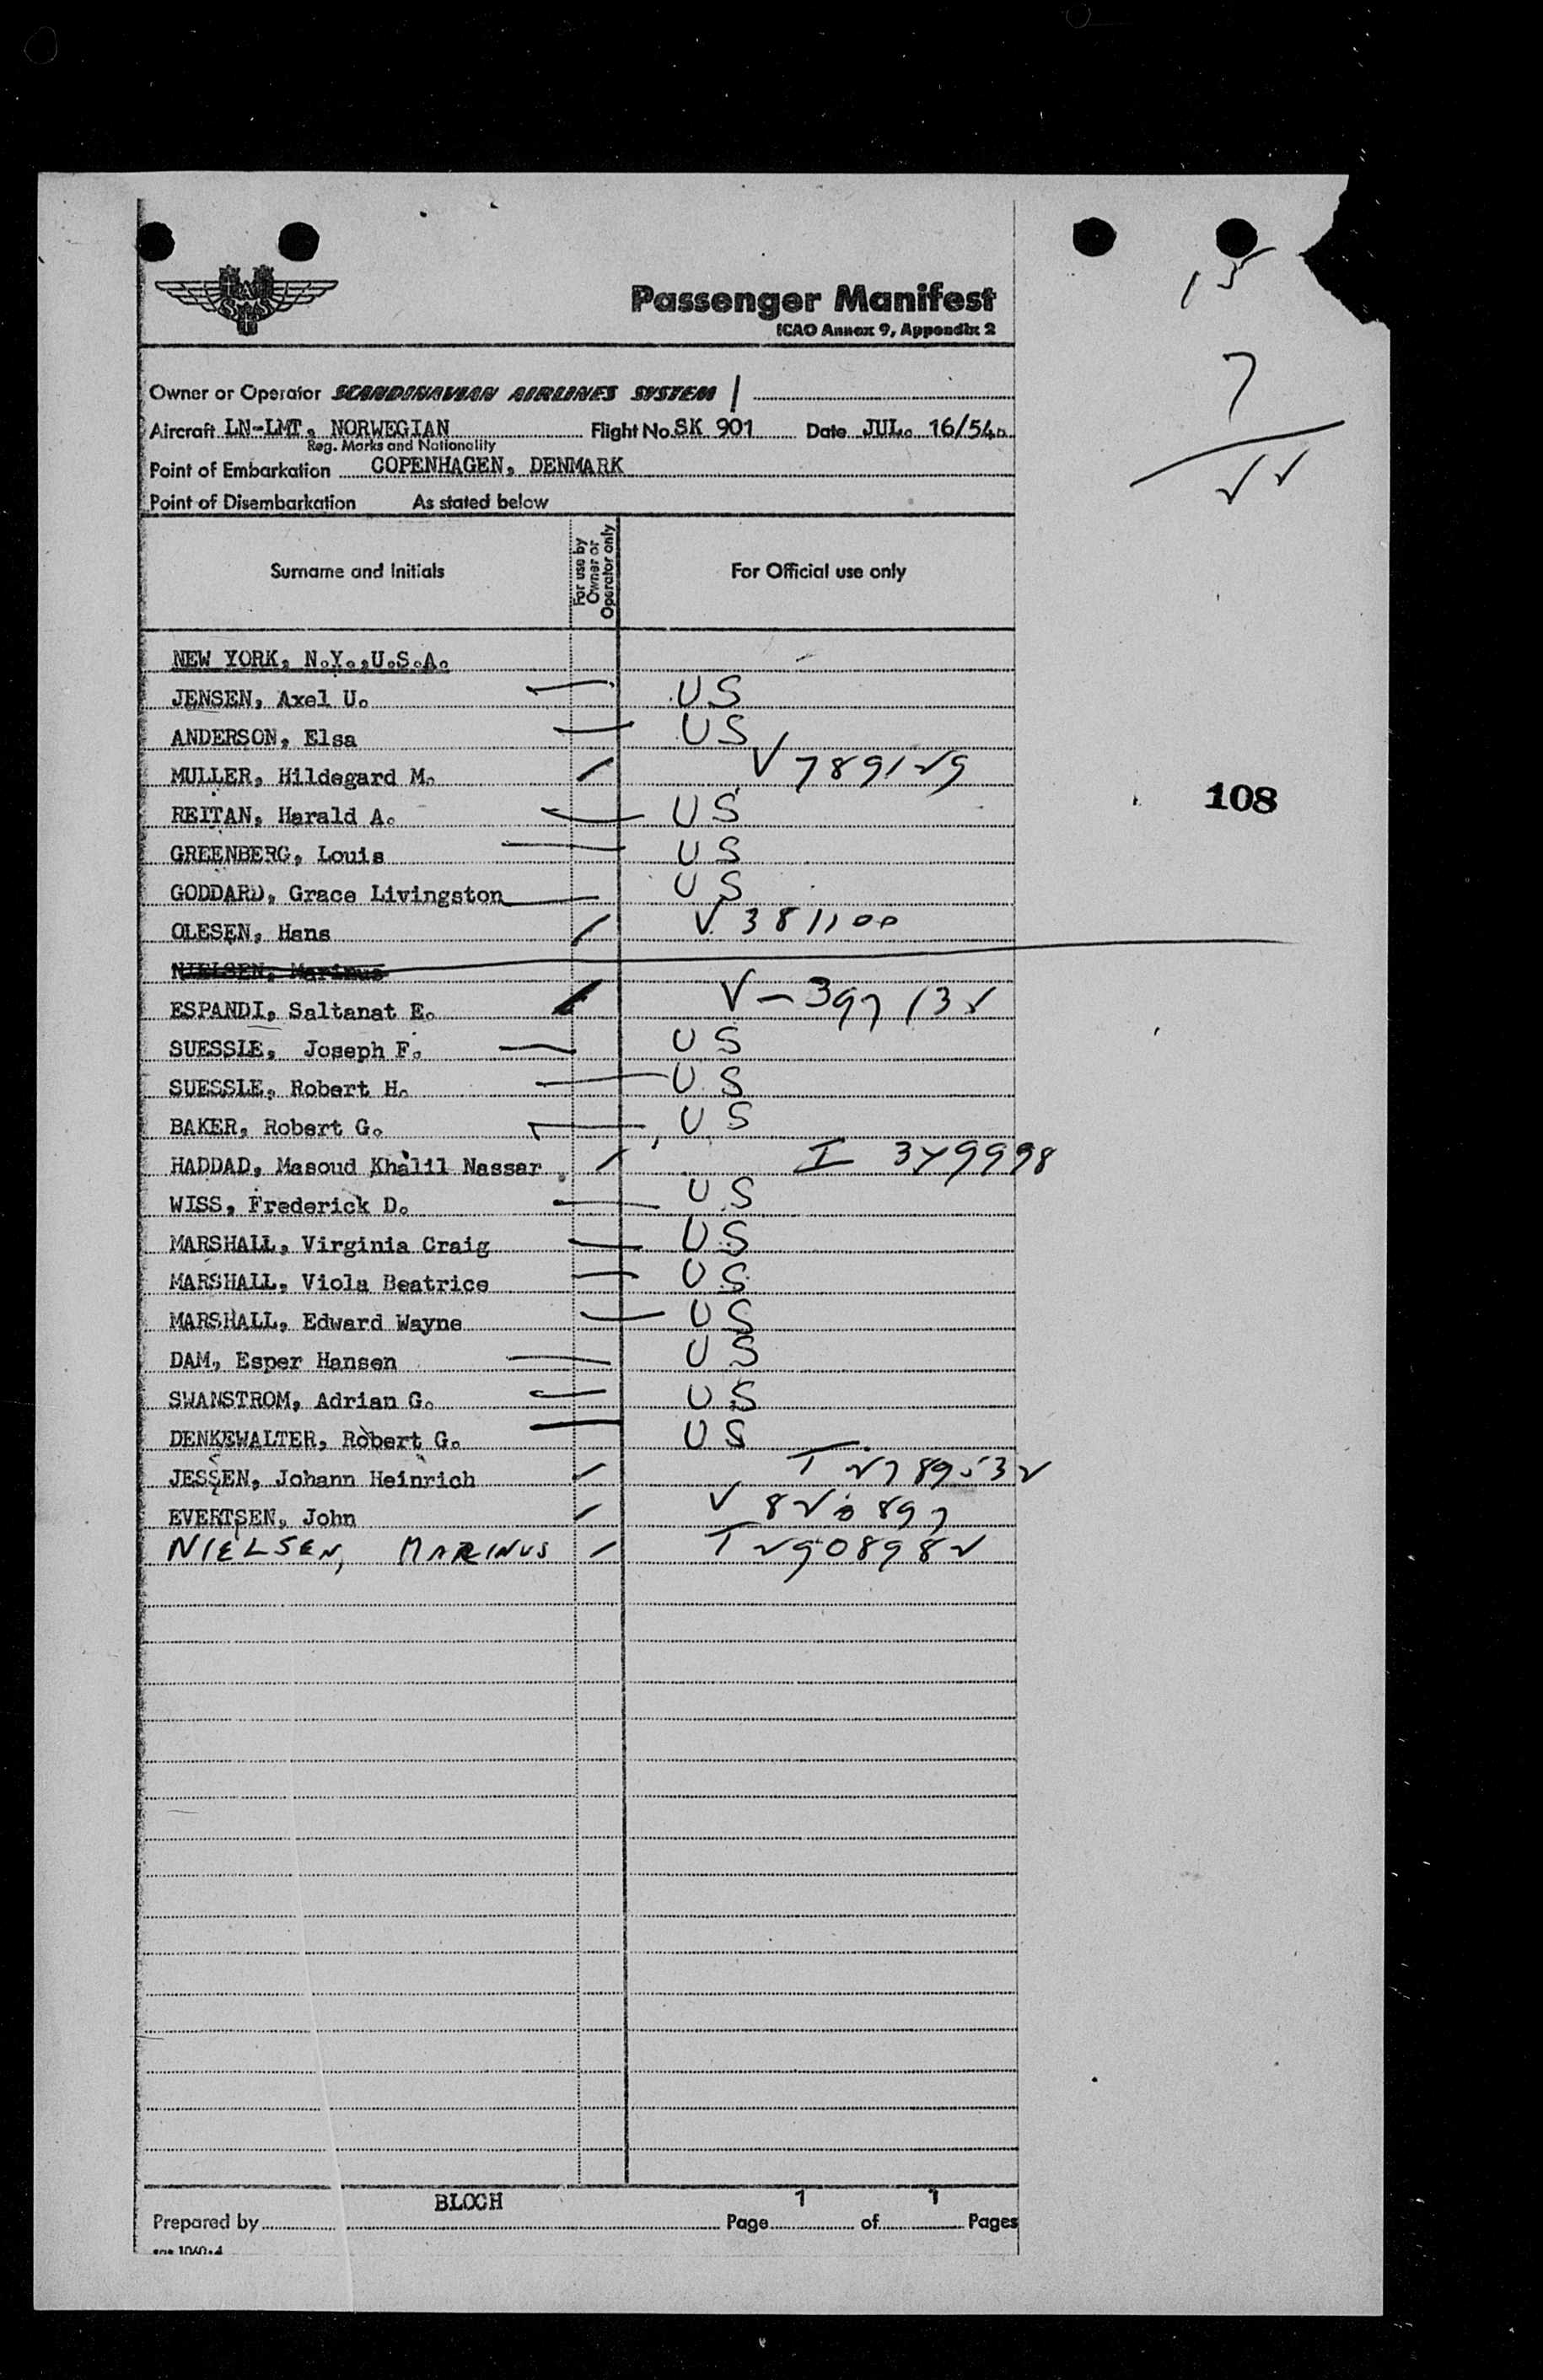 SAS
Passenger Manifest
ICAO Annex 9, Appendix 2
15
7
22
Owner or Operator SCANDINAVIAN AIRLINES SYSTEM
Aircraft LN-LMT, NORWEGIAN Flight No. SK 901 Date JUL. 16/54.
Reg. Marks and Nationality
Point of Embarkation COPENHAGEN, DENMARK
Point of Disembarkation As stated below
Surname and Initials For use by Owner or Operator only For Official use only
NEW YORK, N.Y.,U.S.A.
JENSEN, Axel U. US
ANDERSON, Elsa US
MULLER, Hildegard M. V 789129
REITAN, Harald A. US
108
GREENBERG, Louis US
GODDARD, Grace Livingston US
OLESEN, Hans V 381100
NIELSEN, Marinus
ESPANDI, Saltanat E. V-397132
SUESSLE, Joseph F. US
SUESSLE, Robert H. US
BAKER, Robert G. US
HADDAD, Masoud Khalil Nassar I 379998
WISS, Frederick D. US
MARSHALL, Virginia Craig US
MARSHALL, Viola Beatrice US
MARSHALL, Edward Wayne US
DAM, Esper Hansen US
SWANSTROM, Adrian G. US
DENKEWALTER, Robert G. US
JESSEN, Johann Heinrich T 2789532
EVERTSEN, John V 820897
NIELSEN, MARINUS T 2908982
BLOCH 1 1
Prepared by Page of Pages